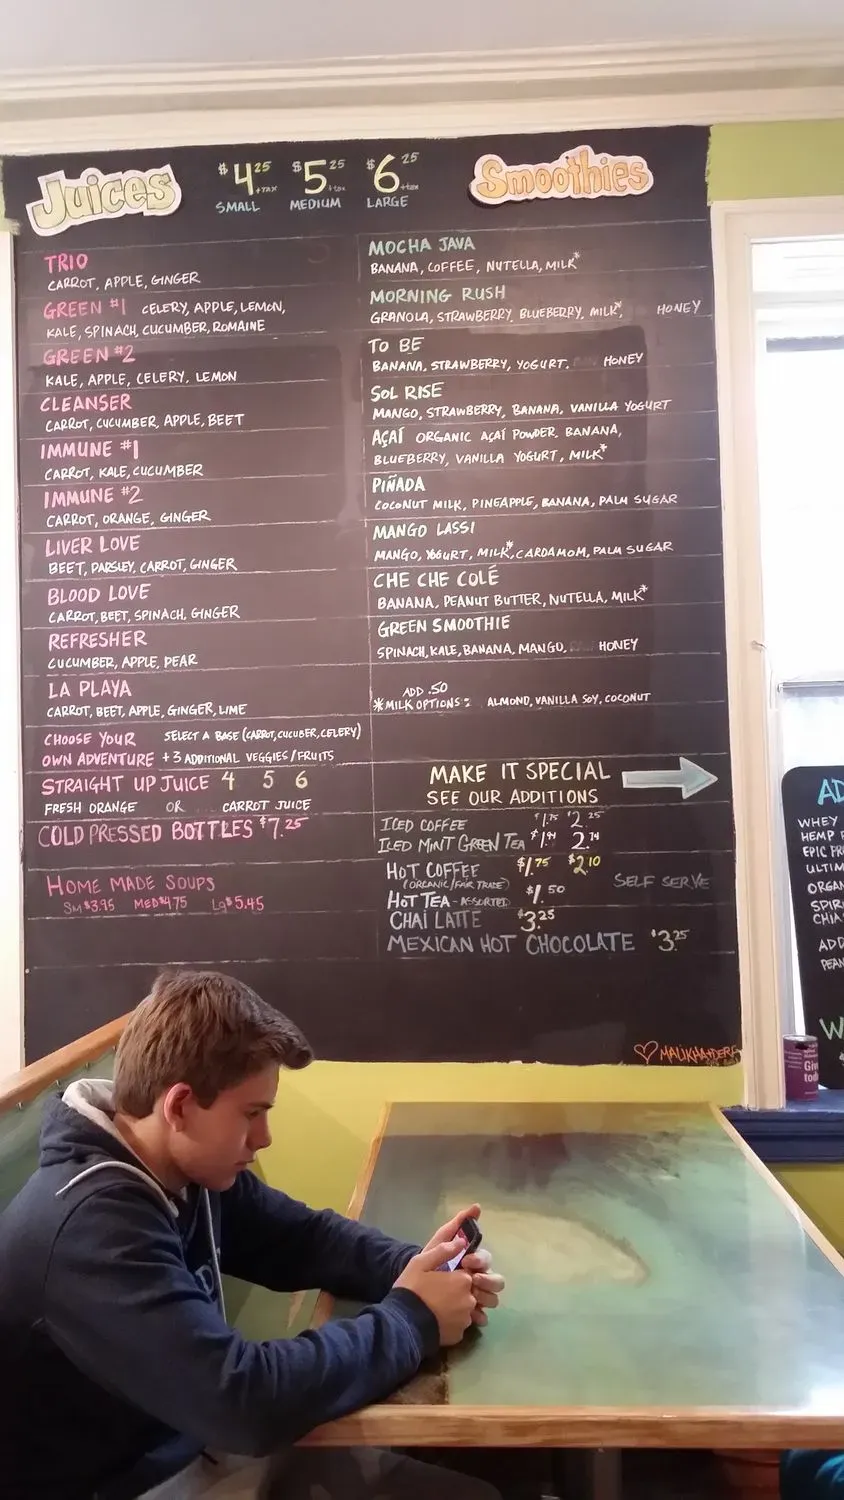 Juices
$4.25 +tax $5.25 +tax $6.25 +tax
SMALL MEDIUM LARGE
Smoothies
TRIO
CARROT, APPLE, GINGER
GREEN #1 CELERY, APPLE, LEMON,
KALE, SPINACH, CUCUMBER, ROMAINE
GREEN #2
KALE, APPLE, CELERY, LEMON
CLEANSER
CARROT, CUCUMBER, APPLE, BEET
IMMUNE #1
CARROT, KALE, CUCUMBER
IMMUNE #2
CARROT, ORANGE, GINGER
LIVER LOVE
BEET, PARSLEY, CARROT, GINGER
BLOOD LOVE
CARROT, BEET, SPINACH, GINGER
REFRESHER
CUCUMBER, APPLE, PEAR
LA PLAYA
CARROT, BEET, APPLE, GINGER, LIME
CHOOSE YOUR SELECT A BASE (CARROT, CUCUBER, CELERY)
OWN ADVENTURE +3 ADDITIONAL VEGGIES/FRUITS
STRAIGHT UP JUICE 4 5 6
FRESH ORANGE OR CARROT JUICE
COLD PRESSED BOTTLES $7.25
HOME MADE SOUPS
Sm $3.95 MED $4.75 Lg $5.45
MOCHA JAVA
BANANA, COFFEE, NUTELLA, MILK*
MORNING RUSH
GRANOLA, STRAWBERRY, BLUEBERRY, MILK*, HONEY
TO BE
BANANA, STRAWBERRY, YOGURT. HONEY
SOL RISE
MANGO, STRAWBERRY, BANANA, VANILLA YOGURT
AÇAÍ ORGANIC AÇAÍ POWDER, BANANA,
BLUEBERRY, VANILLA YOGURT, MILK*
PIÑADA
COCONUT MILK, PINEAPPLE, BANANA, PALM SUGAR
MANGO LASSI
MANGO, YOGURT, MILK*, CARDAMOM, PALM SUGAR
CHE CHE COLÉ
BANANA, PEANUT BUTTER, NUTELLA, MILK*
GREEN SMOOTHIE
SPINACH, KALE, BANANA, MANGO, HONEY
ADD .50
*MILK OPTIONS: ALMOND, VANILLA SOY, COCONUT
MAKE IT SPECIAL
SEE OUR ADDITIONS
ICED COFFEE $1.75 $2.25
ICED MINT GREEN TEA $1.94 2.74
HOT COFFEE $1.75 $2.10
(ORGANIC/FAIR TRADE)
SELF SERVE
HOT TEA - ASSORTED $1.50
CHAI LATTE $3.25
MEXICAN HOT CHOCOLATE $3.25
MALIKHA+DERF
AD
WHEY
HEMP
EPIC
ULTIM
ORGAN
SPIR
CHIA
ADD
PEAN
W
Giv
tod